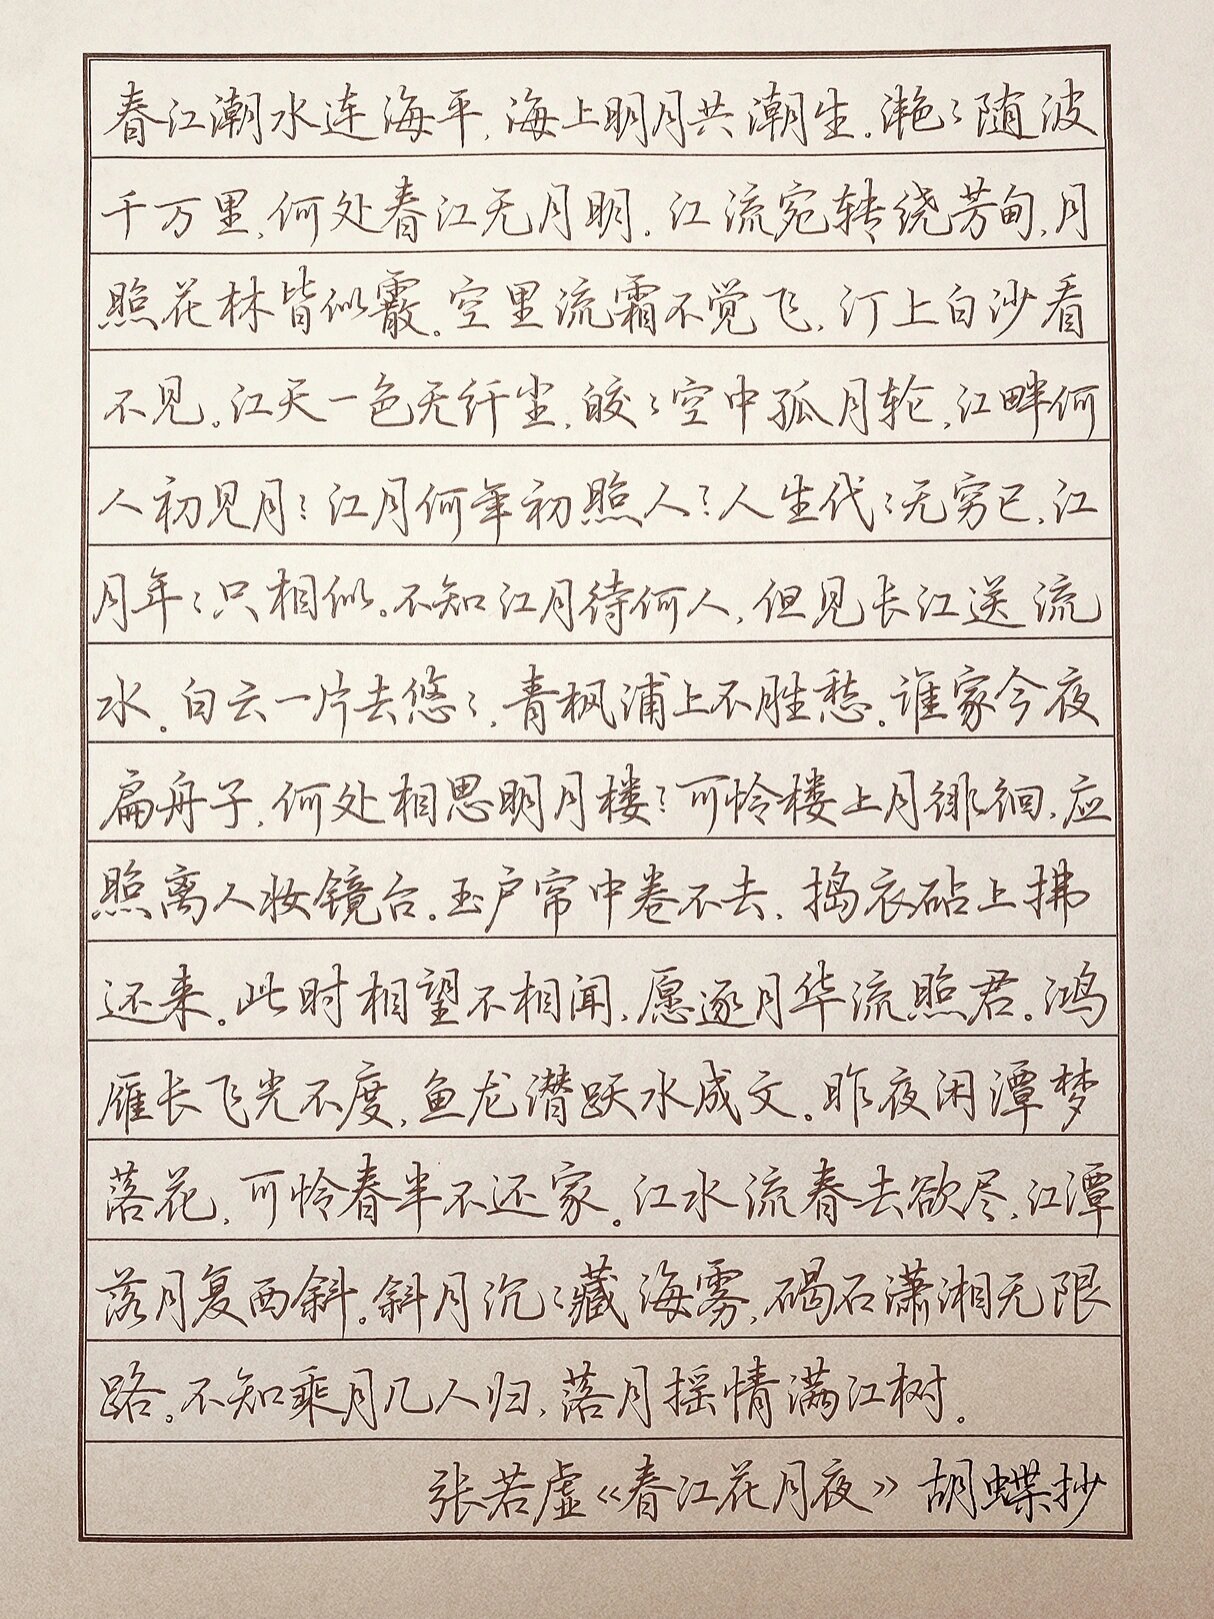 春江潮水连海平，海上明月共潮生。滟々随波
千万里，何处春江无月明。江流宛转绕芳甸，月
照花林皆似霰。空里流霜不觉飞，汀上白沙看
不见。江天一色无纤尘，皎々空中孤月轮，江畔何
人初见月？江月何年初照人？人生代々无穷已，江
月年々只相似。不知江月待何人，但见长江送流
水。白云一片去悠々，青枫浦上不胜愁。谁家今夜
扁舟子，何处相思明月楼？可怜楼上月徘徊，应
照离人妆镜台。玉户帘中卷不去，捣衣砧上拂
还来。此时相望不相闻，愿逐月华流照君。鸿
雁长飞光不度，鱼龙潜跃水成文。昨夜闲潭梦
落花，可怜春半不还家。江水流春去欲尽，江潭
落月复西斜。斜月沉々藏海雾，碣石潇湘无限
路。不知乘月几人归，落月摇情满江树。
张若虚《春江花月夜》胡蝶抄